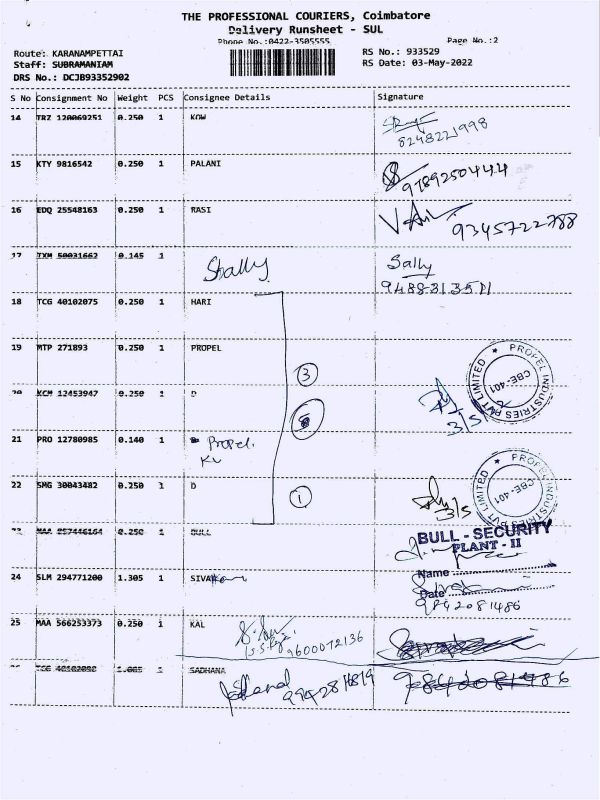 THE PROFESSIONAL COURIERS, Coimbatore
Delivery Runsheet - SUL
Phone No.:0422-3505555
Page No.:2
Route: KARANAMPETTAI
RS No.: 933529
Staff: SUBRAMANIAM
RS Date: 03-May-2022
DRS No.: DCJB93352902
S No Consignment No Weight PCS Consignee Details Signature
14 TRZ 120069251 0.250 1 KOW
8248221998
15 KTY 9816542 0.250 1 PALANI
9789250444
16 EDQ 25548163 0.250 1 RASI
9345722788
17 TXM 50031662 0.145 1 Shally Sally
18 TCG 40102075 0.250 1 HARI
19 MTP 271893 0.250 1 PROPEL
PROPEL INDUSTRIES PVT LIMITED
CBE-401
3
20 KCM 12453947 0.250 1 D
3/5
21 PRO 12780985 0.140 1 Propel.
22 SMG 30043482 0.250 1 D
1
3/5
PROPEL INDUSTRIES PVT LIMITED
CBE-401
23 MAA 0.250 1 BULL
BULL - SECURITY
PLANT - II
Name
24 SLM 294771200 1.305 1 SIVA
Date
9842081486
25 MAA 566253373 0.250 1 KAL
9600072136
1 SADHANA
9842081486